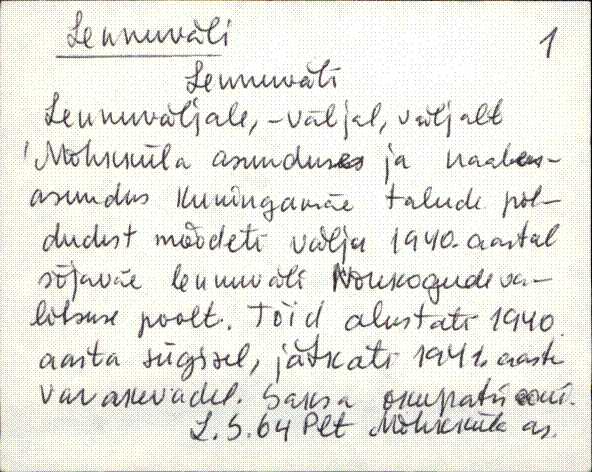 Lennuväli
1
Lennuväli
Lennuväljale, -väljal, väljalt
Mõhkküla asunduses ja naaber-
asundus Kuningamäe talude põl-
dudest mõõdeti välja 1940. aastal
sõjaväe lennuväli Nõukogude va-
litsuse poolt. Töid alustati 1940.
aasta sügisel, jätkati 1941. aasta
varakevadel. Saksa okupatsiooni.
L. S. 64 Plt Mõhkküla as.